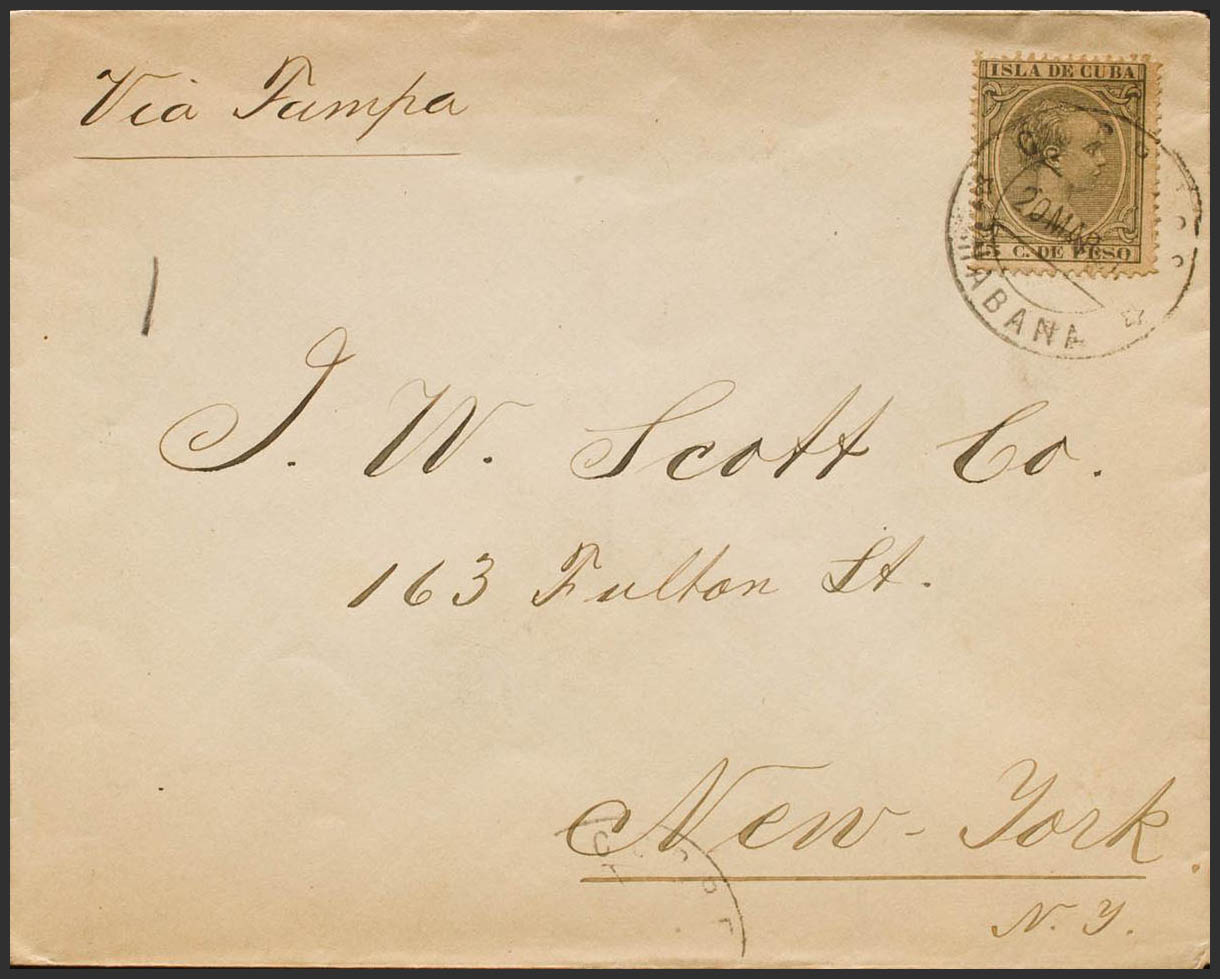 Via Tampa
ISLA DE CUBA
C. DE PESO
20 MAR
HABANA
J. W. Scott Co.
163 Fulton St.
New-York.
N. Y.